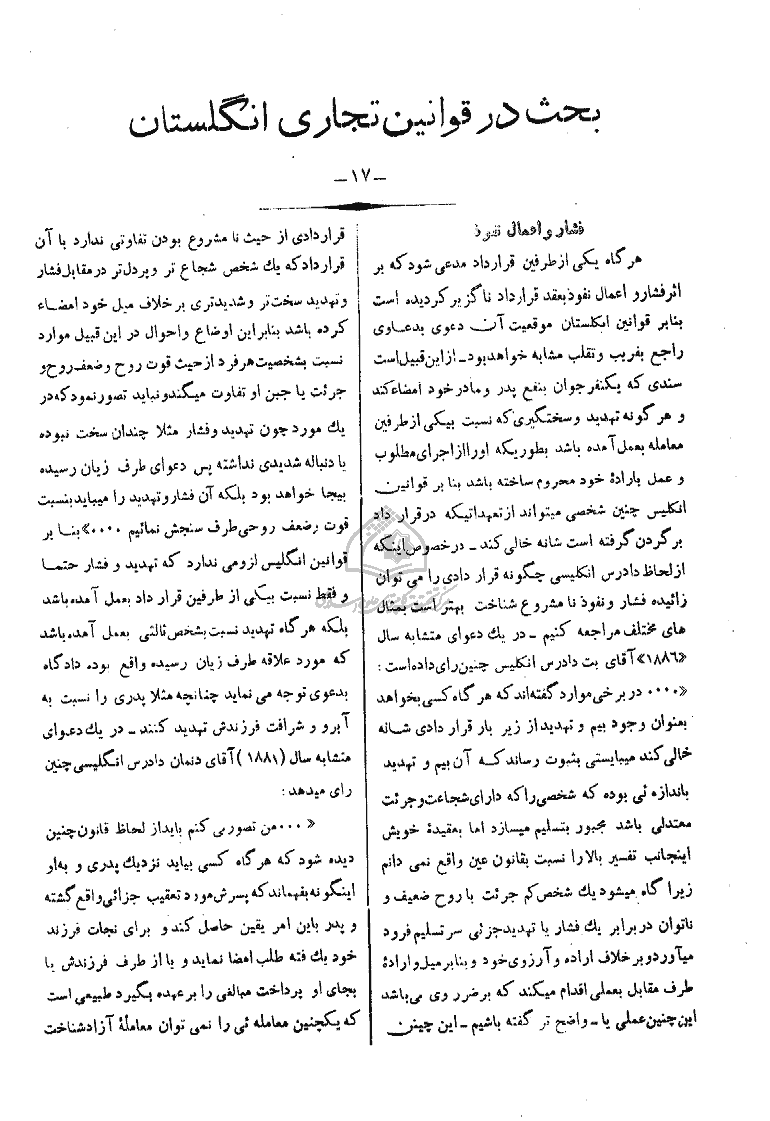 بحث در قوانین تجاری انگلستان
–۱۷–
فشار و اعمال نفوذ
هر گاه یکی از طرفین قرارداد مدعی شود که بر
اثر فشار و اعمال نفوذ بعقد قرارداد ناگزیر گردیده است
بنابر قوانین انگلستان موقعیت آن دعوی بدعاوی
راجع بفریب و تقلب مشابه خواهد بود ـ از این قبیل است
سندی که یکنفر جوان بنفع پدر و مادر خود امضاء کند
و هر گونه تهدید و سختگیری که نسبت بیکی از طرفین
معامله بعمل آمده باشد بطوریکه او را از اجرای مطلوب
و عمل بارادهٔ خود محروم ساخته باشد بنا بر قوانین
انگلیس چنین شخصی میتواند از تعهداتیکه در قرار داد
بر گردن گرفته است شانه خالی کند ـ در خصوص اینکه
از لحاظ دادرس انگلیسی چگونه قرار دادی را می توان
زائیده فشار و نفوذ نا مشروع شناخت بهتر است بمثال
های مختلف مراجعه کنیم ـ در یك دعوای متشابه سال
«۱۸۸۶» آقای بت دادرس انگلیس چنین رای داده است :
«۰۰۰۰ در برخی موارد گفته‌اند که هر گاه کسی بخواهد
بعنوان وجود بیم و تهدید از زیر بار قرار دادی شانه
خالی کند میبایستی بثبوت رساند که آن بیم و تهدید
باندازه ئی بوده که شخصی را که دارای شجاعت و جرئت
معتدلی باشد مجبور بتسلیم میسازد اما بعقیدهٔ خویش
اینجانب تفسیر بالا را نسبت بقانون عین واقع نمی دانم
زیرا گاه میشود یك شخص کم جرئت با روح ضعیف و
ناتوان در برابر یك فشار یا تهدید جزئی سر تسلیم فرود
میآورد و بر خلاف اراده و آرزوی خود و بنابر میل و ارادهٔ
طرف مقابل بعملی اقدام میکند که بر ضرر وی می باشد
این چنین عملی یا ـ واضح تر گفته باشیم ـ این چنین
قراردادی از حیث نا مشروع بودن تفاوتی ندارد با آن
قرارداد که یك شخص شجاع تر و پردل تر در مقابل فشار
و تهدید سخت‌تر و شدیدتری بر خلاف میل خود امضاء
کرده باشد بنابراین اوضاع و احوال در این قبیل موارد
نسبت بشخصیت هر فرد از حیث قوت روح و ضعف روح و
جرئت یا جبن او تفاوت میکند و نباید تصور نمود که در
یك مورد چون تهدید و فشار مثلا چندان سخت نبوده
یا دنباله شدیدی نداشته پس دعوای طرف زیان رسیده
بیجا خواهد بود بلکه آن فشار و تهدید را میباید بنسبت
قوت وضعف روحی طرف سنجش نمائیم ۰۰۰۰» بنا بر
قوانین انگلیس لزومی ندارد که تهدید و فشار حتما
و فقط نسبت بیکی از طرفین قرار داد بعمل آمده باشد
بلکه هر گاه تهدید نسبت بشخص ثالثی بعمل آمده باشد
که مورد علاقه طرف زیان رسیده واقع بوده دادگاه
بدعوی توجه می نماید چنانچه مثلا پدری را نسبت به
آبرو و شرافت فرزندش تهدید کنند ـ در یك دعوای
متشابه سال (۱۸۸۱) آقای دنمان دادرس انگلیسی چنین
رای میدهد :
«۰۰۰ من تصور می کنم باید از لحاظ قانون چنین
دیده شود که هر گاه کسی بیاید نزدیك پدری و به‌او
اینگونه بفهماند که پسرش مورد تعقیب جزائی واقع گشته
و پدر باین امر یقین حاصل کند و برای نجات فرزند
خود یك فته طلب امضا نماید و یا از طرف فرزندش یا
بجای او پرداخت مبالغی را بر عهده بگیرد طبیعی است
که یکچنین معامله ئی را نمی توان معاملهٔ آزاد شناخت